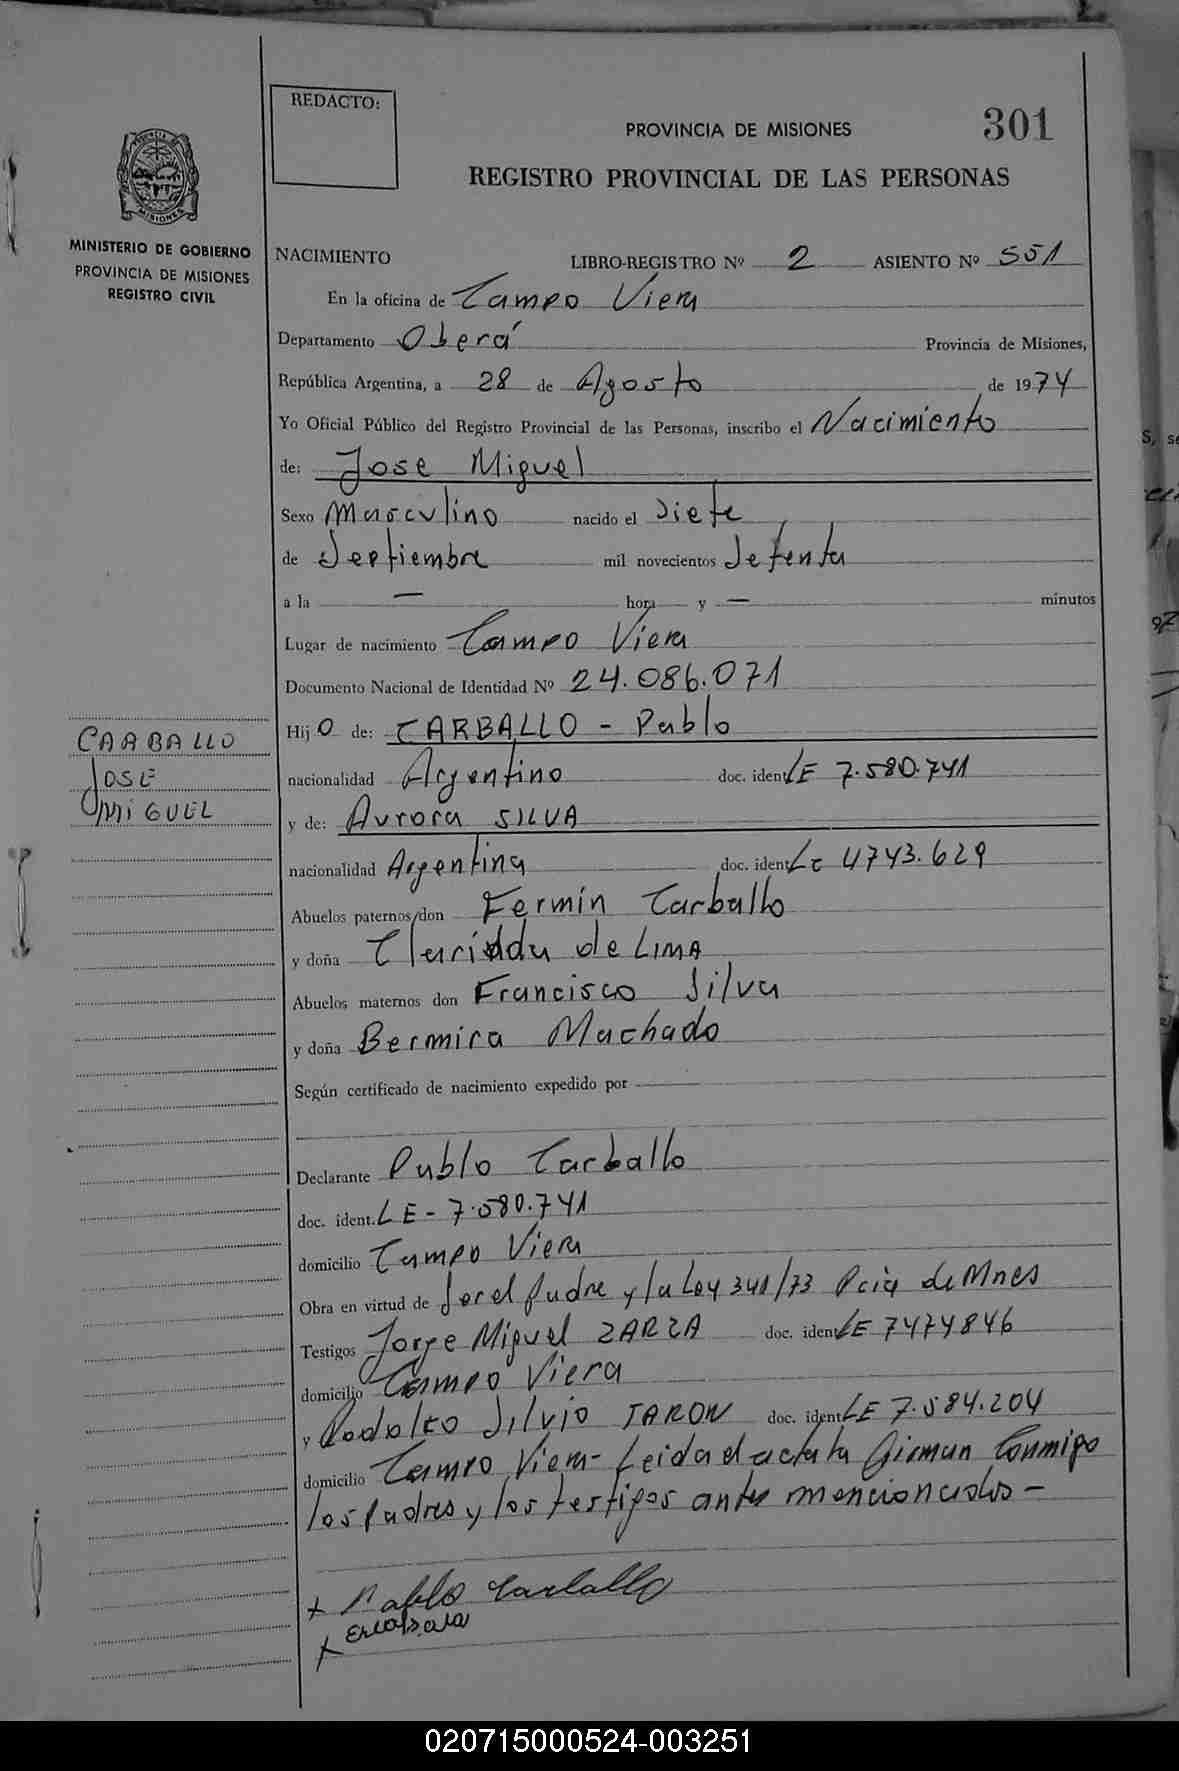 REDACTO:
301
PROVINCIA DE MISIONES
REGISTRO PROVINCIAL DE LAS PERSONAS
PROVINCIA DE
MISIONES
MINISTERIO DE GOBIERNO
PROVINCIA DE MISIONES
REGISTRO CIVIL
NACIMIENTO LIBRO-REGISTRO Nº 2 ASIENTO Nº 551
En la oficina de Campo Viera
Departamento Oberá Provincia de Misiones,
República Argentina, a 28 de Agosto de 1974
Yo Oficial Público del Registro Provincial de las Personas, inscribo el Nacimiento
de: Jose Miguel
Sexo Masculino nacido el Siete
de Septiembre mil novecientos Setenta
a la — hora y — minutos
Lugar de nacimiento Campo Viera
Documento Nacional de Identidad Nº 24.086.071
Hij O de: CARBALLO - Pablo
nacionalidad Argentino doc. ident. LE 7.580.741
y de: Aurora SILVA
nacionalidad Argentina doc. ident. Lc 4743.629
CARBALLO
JOSE
MIGUEL
Abuelos paternos don Fermin Carballo
y doña de LIMA
Abuelos maternos don Francisco Silva
y doña Bermira Machado
Según certificado de nacimiento expedido por —
Declarante Pablo Carballo
doc. ident. LE - 7.580.741
domicilio Campo Viera
Obra en virtud de Ser el Padre y la Ley 341/73 Pcia de Mnes
Testigos Jorge Miguel ZARZA doc. ident. LE 7474846
domicilio Campo Viera
y Rodolfo Silvio TARON doc. ident. LE 7.584.204
domicilio Campo Viera - Leida el acta la Firman Conmigo
los Padres y los testigos antes mencionados -
+ Pablo Carballo
+
020715000524-003251